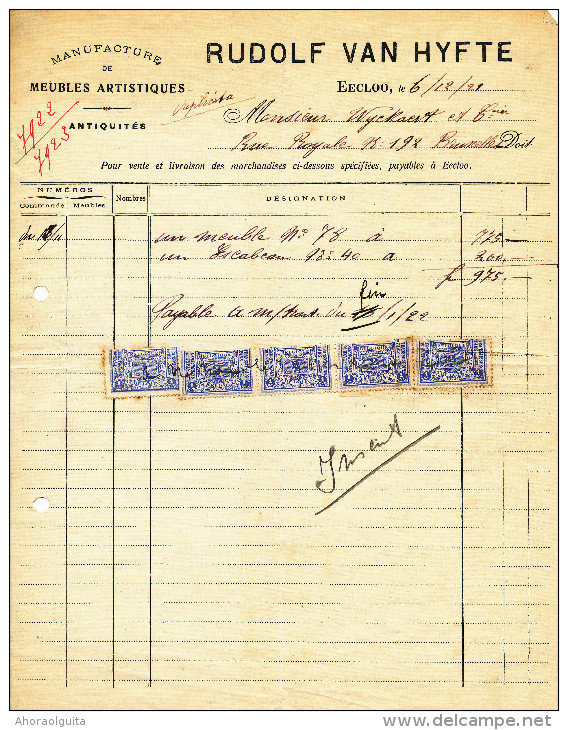 MANUFACTURE
DE
MEUBLES ARTISTIQUES
ANTIQUITÉS
7922
7923
RUDOLF VAN HYFTE
EECLOO, le 6/12/21
duplicata
Monsieur Wyckaert et Cie
Rue Royale N. 192 Bruxelles Doit
Pour vente et livraison des marchandises ci-dessous spécifiées, payables à Eecloo.
NUMÉROS
Commande Meubles Nombres DÉSIGNATION
un meuble No 78 à 775.—
un Escabeau No 40 a 200.—
fr 975.—
fin
Payable a m/ du 15/1/22
Ahoraolguita www.delcampe.net